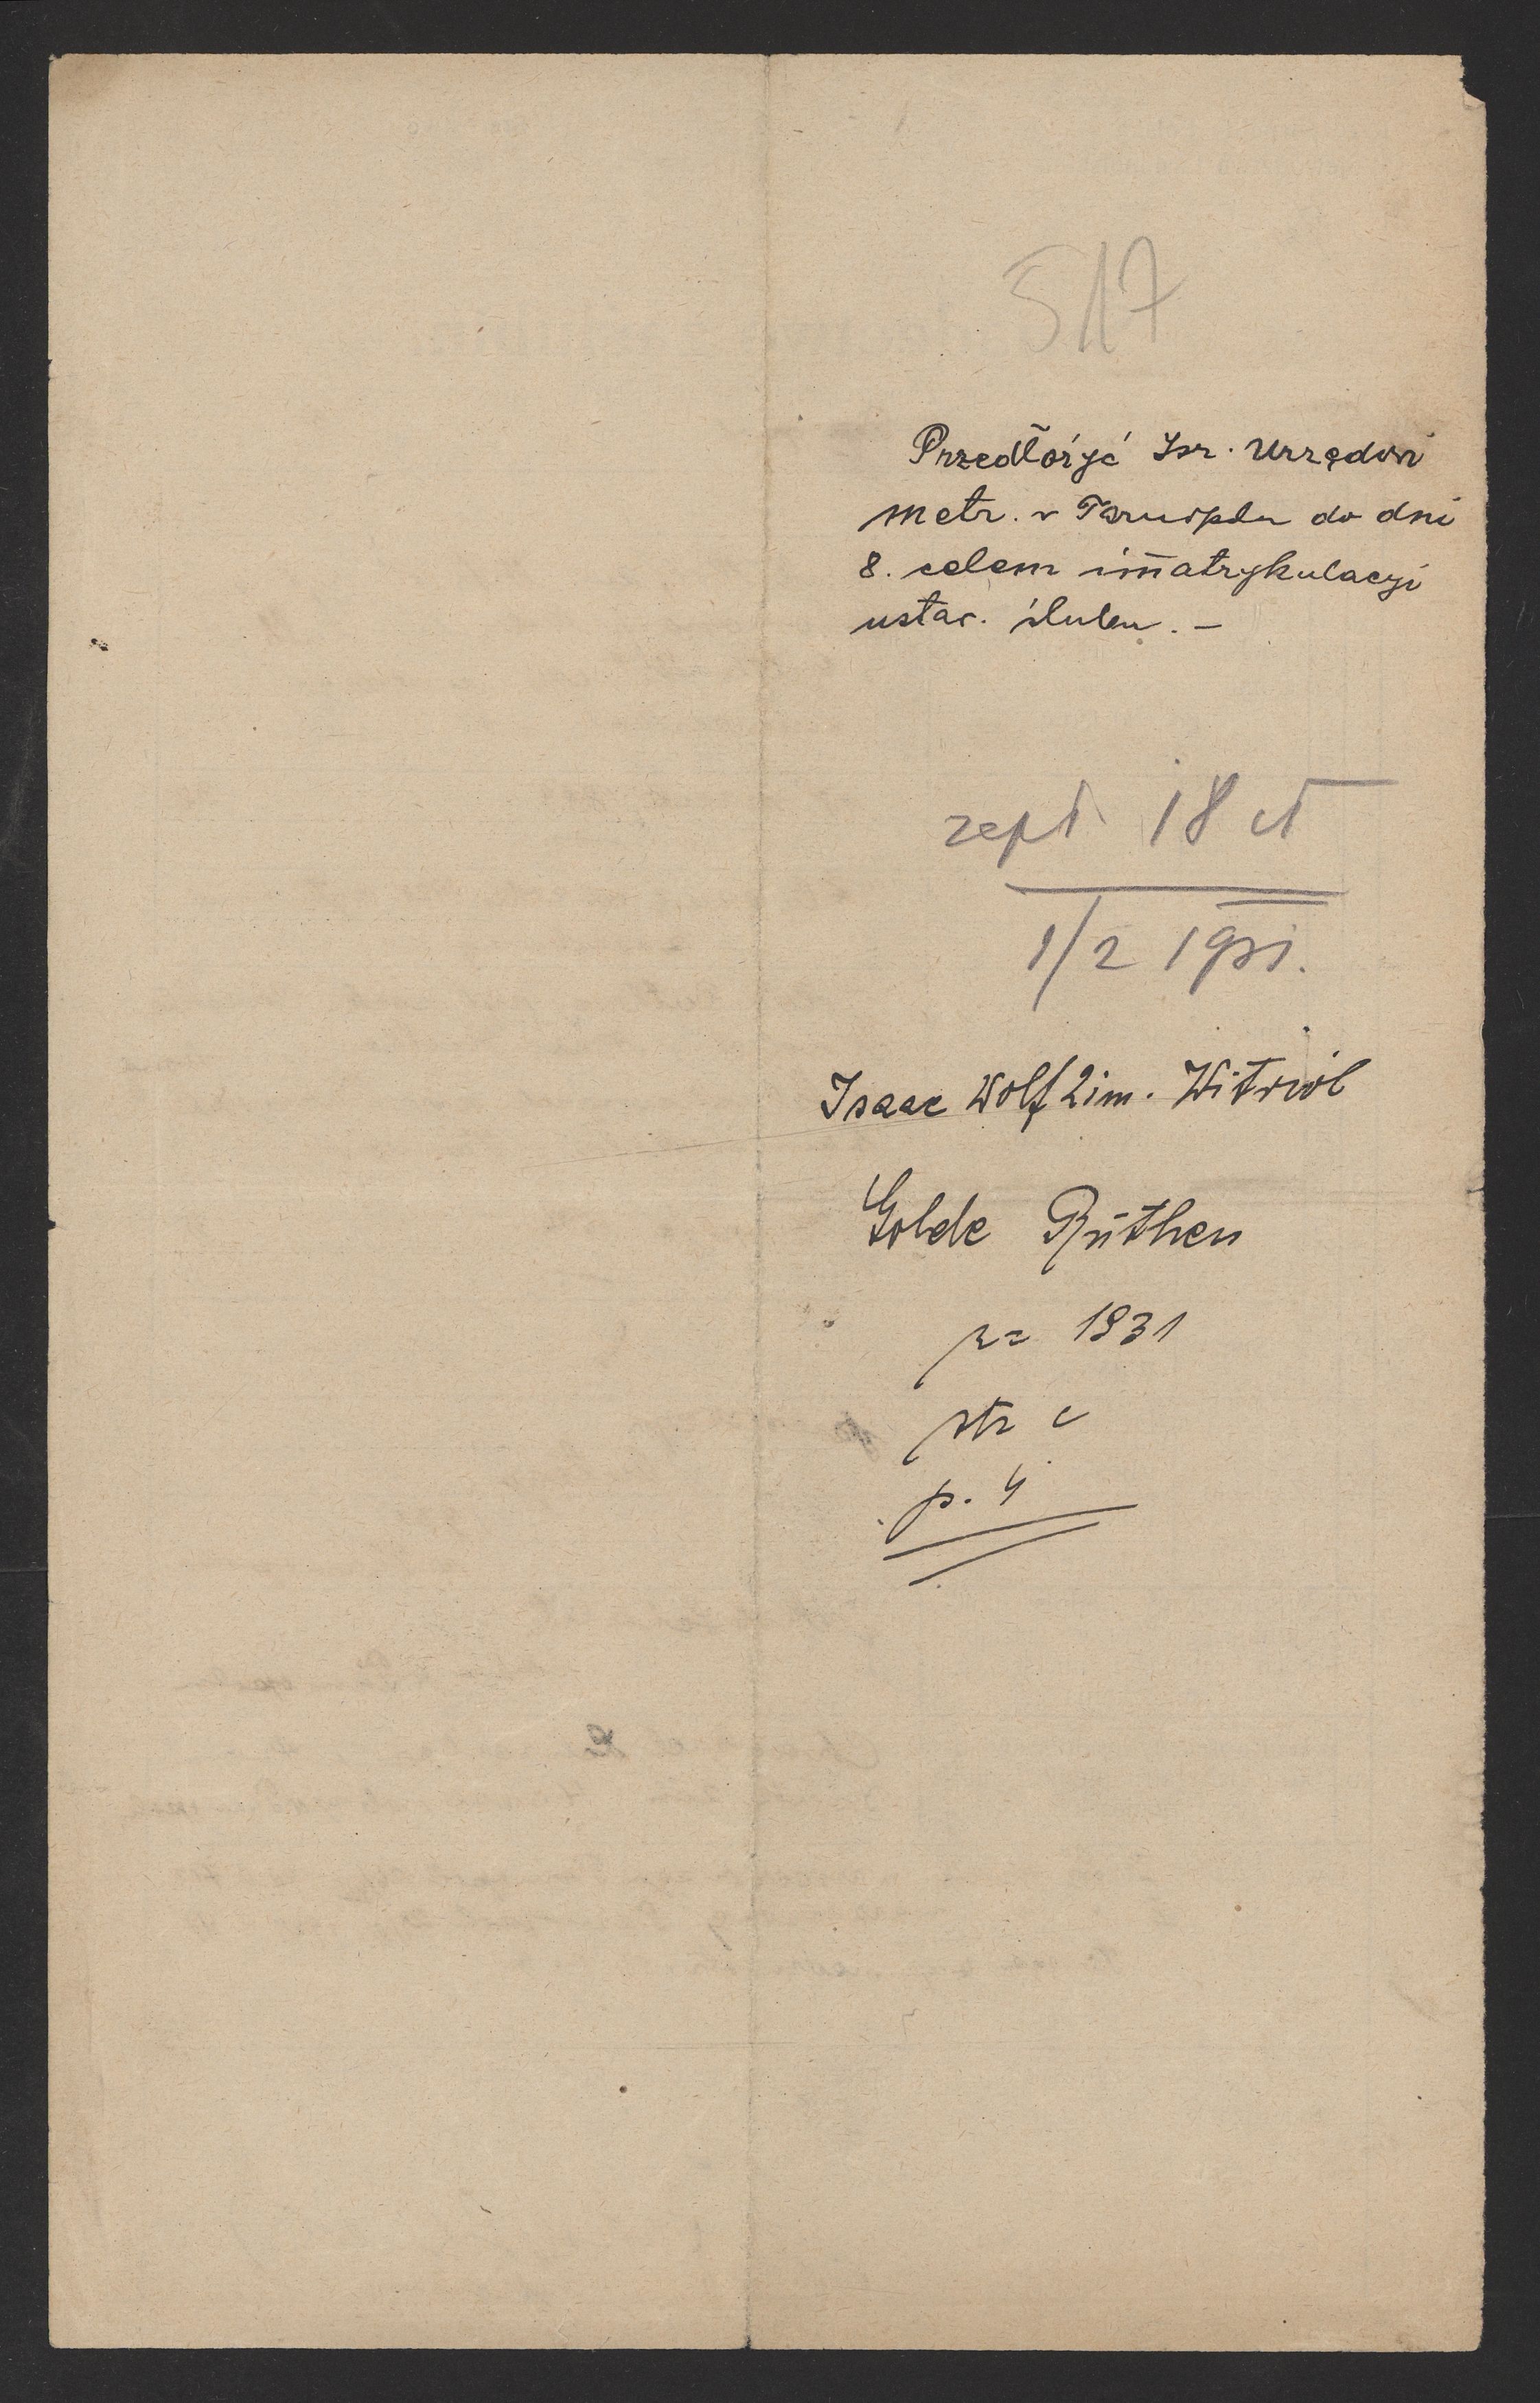 517
Przedłożyć Izr. Urzędowi
metr. w Tarnopolu do dni
8. celem im̄atrykulacyi
ustaw. ślubu. –
18
1/2 1931.
Isaac Wolf 2im. Witriol
Golde Rüthen
rz 1931
str c
p. 4